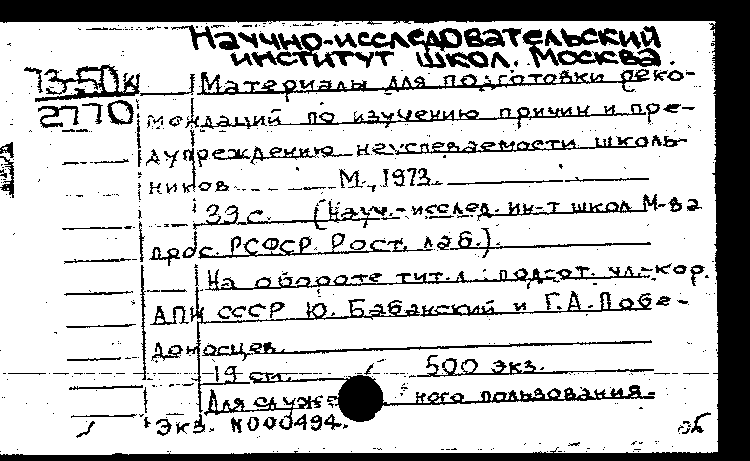 Научно-исследовательский
институт школ. Москва.
73-50к Материалы для подготовки реко-
2770 мендаций по изучению причин и пре-
дупреждению неуспеваемости школь-
ников М., 1973.
39 с. (Науч.-исслед. ин-т школ М-ва
прос. РСФСР. Рост. лаб.).
На обороте тит. л.: подгот. чл.-кор.
АПН СССР Ю. Бабанский и Г.А. Побе-
доносцев.
19 см. 500 экз.
Для служе ного пользования.
Экз. N000494.